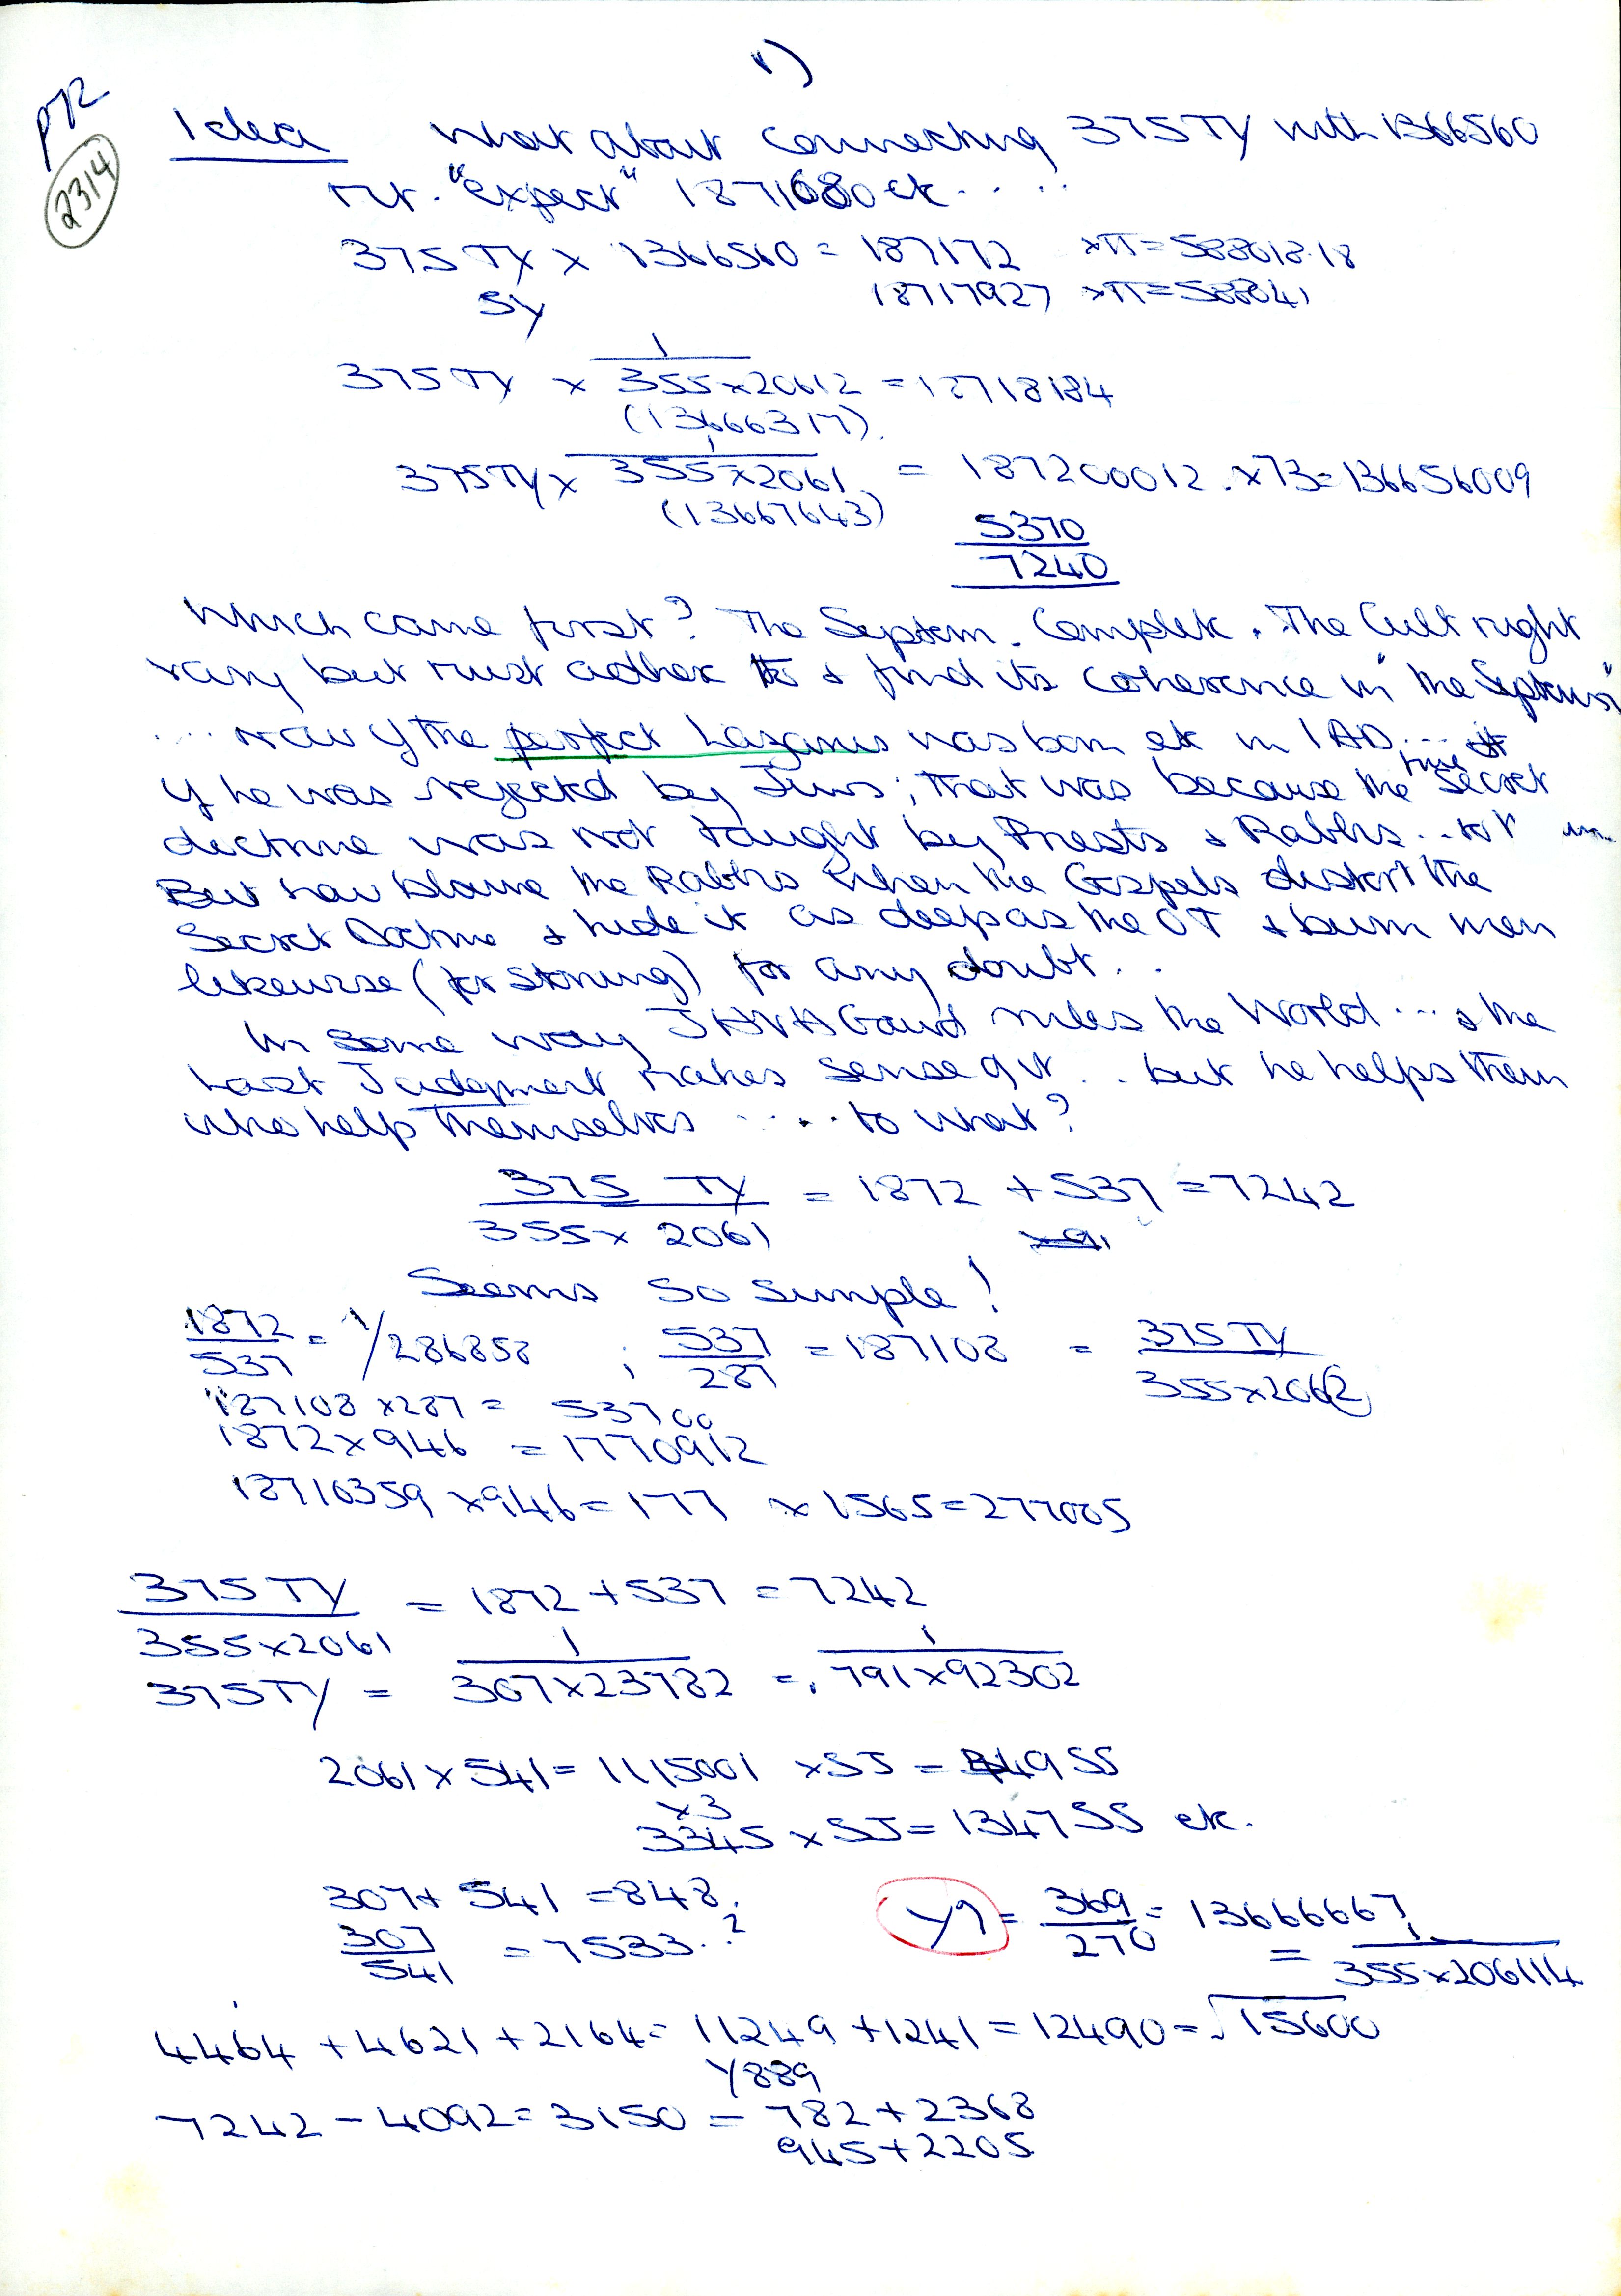 1)
P72
2314
Idea What about connecting 375TY with 1366560
nr. "expect" 1871680 etc....
375 TY x 1366560 = 187172 xπ=588018.18
SY 18717927 xπ=588041
1
375TY x 355x20612 = 18718184
(13666317).
1
375TY x 355x2061 = 187200012. x73=136656009
(13667643)
5370
7240
Which came first? The Septem. Complex. The Cult might
vary but must adhere to & find its coherence in "the Septems"
.... now if the perfect Lazarus was born etc in 1AD...
if he was rejected by Jews; that was because the true Secret
doctrine was not taught by Priests & Rabbis..
But how blame the Rabbis when the Gospels distort the
Secret Doctrine & hide it as deep as the OT & burn men
likewise (for stoning) for any doubt..
In some way JAHVH Gaud rules the World ... & the
Last Judgment makes sense of it .. but he helps them
who help themselves ..... to what?
375 TY = 1872 + 537 = 7242
355x 2061 x 9,
Seems so simple!
1872 = 1/286858 ; 537 = 187108 = 375TY
537 287 355x2062
187108 x287 = 53700
1872x946 = 1770912
18710359 x946=177 x1565=277005
375TY = 1872+537=7242
355x2061
1 1
375TY = 307x23782 = 791x92302
2061x541=1115001 xSJ = 4955
x3
3345 xSJ=134755 etc.
307+ 541 =848.
307 = 7533.?
541
Y9 = 369 = 13666667
270
1
= 355x206114
4464 +4621 +2164= 11249 +1241 =12490=√15600
Y889
7242 - 4092= 3150 = 782+2368
945+2205